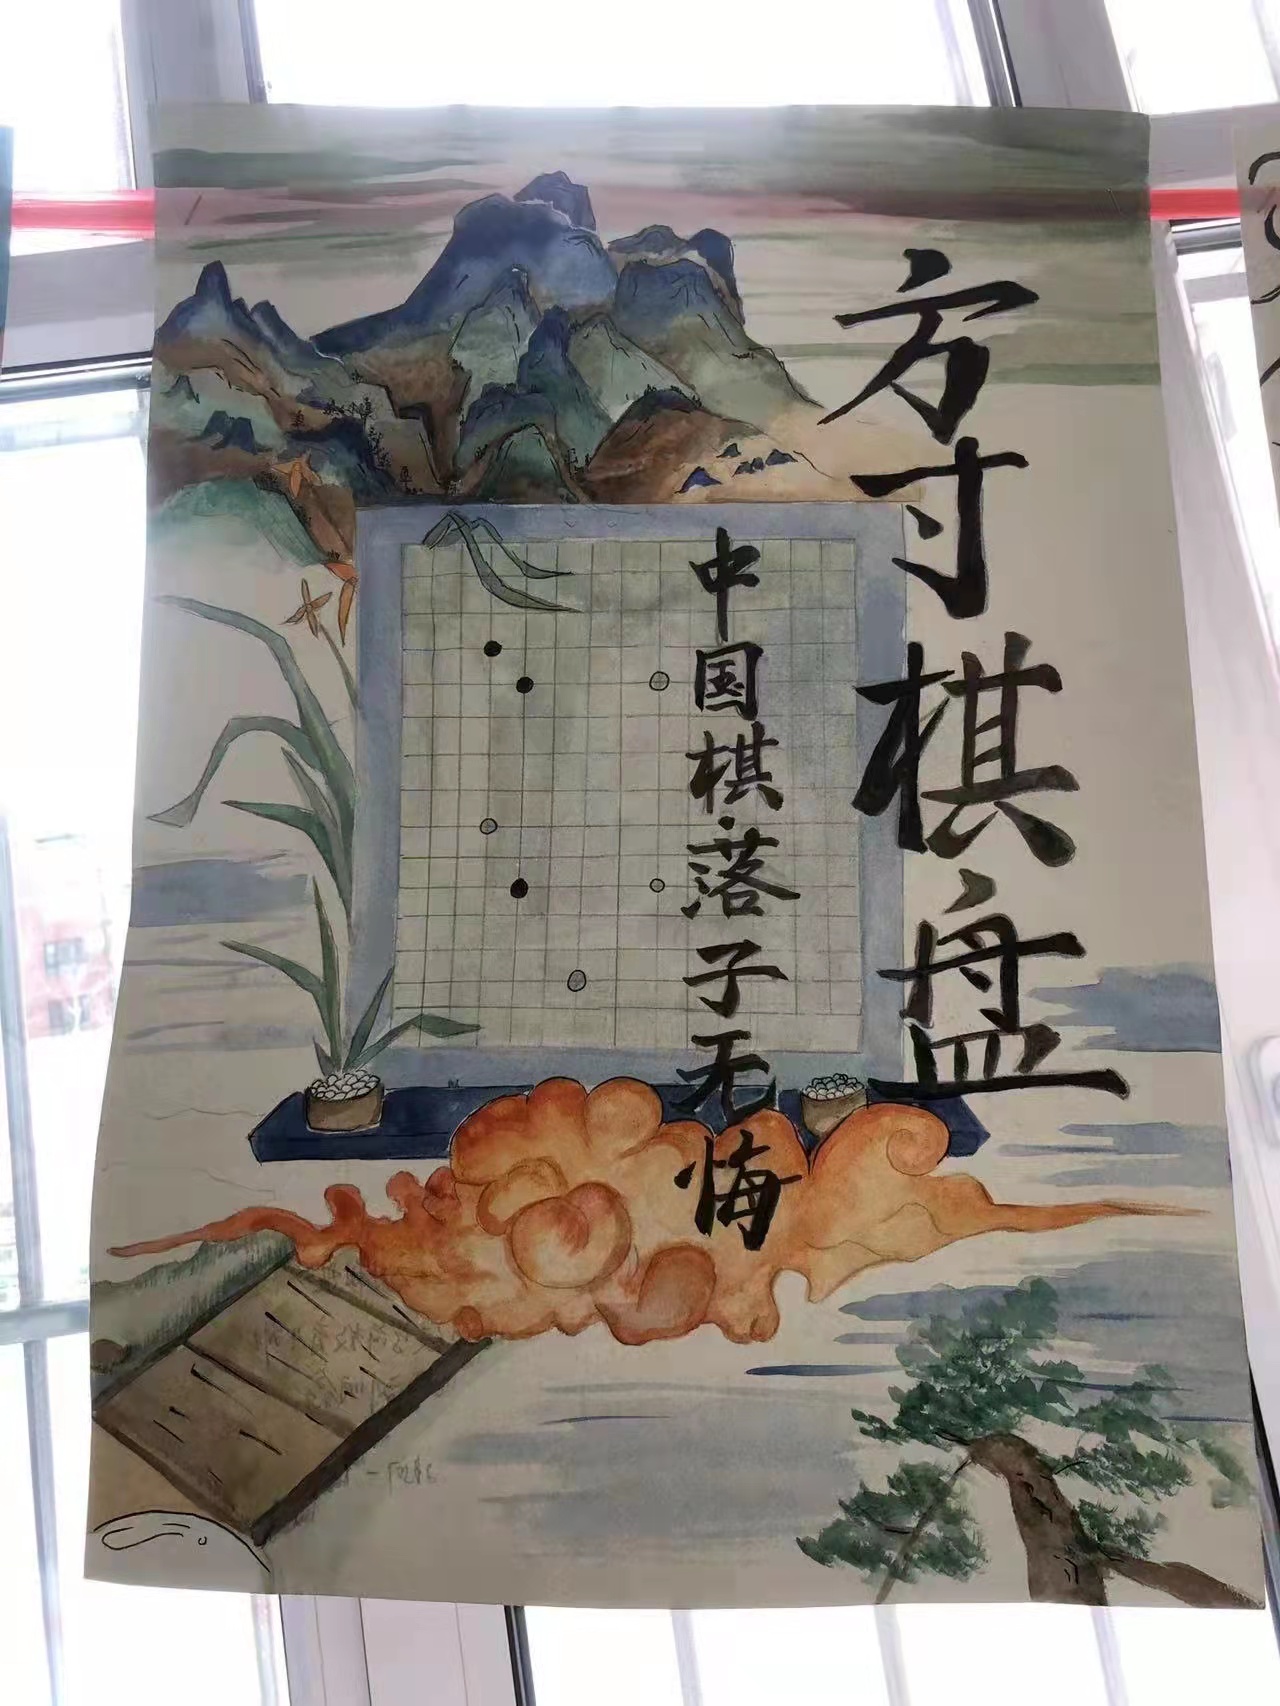 方寸棋盘
中国棋落子无悔